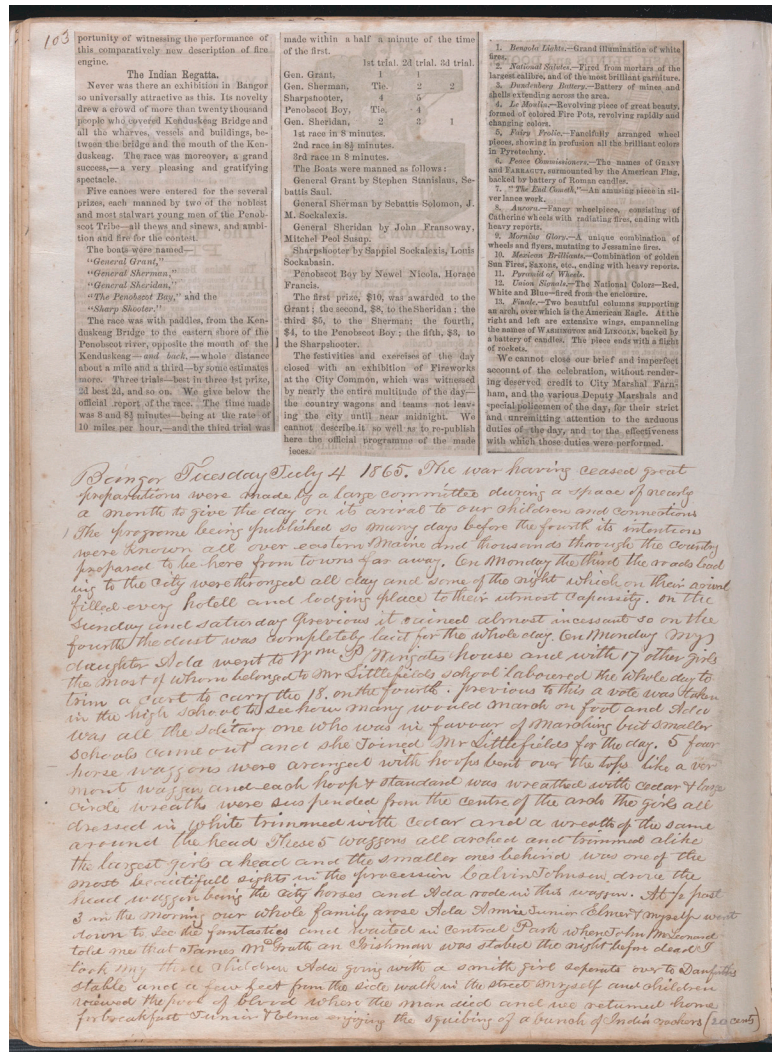 103
portunity of witnessing the performance of
this comparatively new description of fire
engine.
The Indian Regatta.
Never was there an exhibition in Bangor
so universally attractive as this. Its novelty
drew a crowd of more than twenty thousand
people who covered Kenduskeag Bridge and
all the wharves, vessels and buildings, be-
tween the bridge and the mouth of the Ken-
duskeag. The race was moreover, a grand
success,—a very pleasing and gratifying
spectacle.
Five canoes were entered for the several
prizes, each manned by two of the noblest
and most stalwart young men of the Penob-
scot Tribe—all thews and sinews, and ambi-
tion and fire for the contest.
The boats were named—
"General Grant,"
"General Sherman,"
"General Sheridan,"
"The Penobscot Boy," and the
"Sharp Shooter."
The race was with paddles, from the Ken-
duskeag Bridge to the eastern shore of the
Penobscot river, opposite the mouth of the
Kenduskeag—and back,—whole distance
about a mile and a third—by some estimates
more. Three trials—best in three 1st prize,
2d best 2d, and so on. We give below the
official report of the race. The time made
was 8 and 8½ minutes—being at the rate of
10 miles per hour,—and the third trial was
made within a half a minute of the time
of the first.
1st trial. 2d trial. 3d trial.
Gen. Grant, 1 1
Gen. Sherman, Tie. 2 2
Sharpshooter, 4 5
Penobscot Boy, Tie. 4
Gen. Sheridan, 2 3 1
1st race in 8 minutes.
2nd race in 8½ minutes.
3rd race in 8 minutes.
The Boats were manned as follows:
General Grant by Stephen Stanislaus, Se-
battis Saul.
General Sherman by Sebattis Solomon, J.
M. Sockalexis.
General Sheridan by John Fransoway,
Mitchel Peol Susup.
Sharpshooter by Sappiel Sockalexis, Louis
Sockabasin.
Penobscot Boy by Newel Nicola, Horace
Francis.
The first prize, $10, was awarded to the
Grant; the second, $8, to the Sheridan; the
third $5, to the Sherman; the fourth,
$4, to the Penobscot Boy; the fifth, $3, to
the Sharpshooter.
The festivities and exercises of the day
closed with an exhibition of Fireworks
at the City Common, which was witnessed
by nearly the entire multitude of the day—
the country wagons and teams not leav-
ing the city until near midnight. We
cannot describe it so well as to re-publish
here the official programme of the made
ieces.
1. Bengola Lights.—Grand illumination of white
fires.
2. National Salutes.—Fired from mortars of the
largest calibre, and of the most brilliant garniture.
3. Dundenberg Battery.—Battery of mines and
shells extending across the area.
4. Le Moulin.—Revolving piece of great beauty,
formed of colored Fire Pots, revolving rapidly and
changing colors.
5. Fairy Frolic.—Fancifully arranged wheel
pieces, showing in profusion all the brilliant colors
in Pyrotechny.
6. Peace Commissioners.—The names of GRANT
and FARRAGUT, surmounted by the American Flag,
backed by battery of Roman candles.
7. "The End Cometh,"—An amusing piece in sil-
ver lance work.
8. Aurora.—Fancy wheelpiece, consisting of
Catherine wheels with radiating fires, ending with
heavy reports.
9. Morning Glory.—A unique combination of
wheels and flyers, mutating to Jessamine fires.
10. Mexican Brilliants.—Combination of golden
Sun Fires, Saxons, etc., ending with heavy reports.
11. Pyramid of Wheels.
12. Union Signals.—The National Colors—Red,
White and Blue—fired from the enclosure.
13. Finale.—Two beautiful columns supporting
an arch, over which is the American Eagle. At the
right and left are extensive wings, empaneling
the names of WASHINGTON and LINCOLN, backed by
a battery of candles. The piece ends with a flight
of rockets.
We cannot close our brief and imperfect
account of the celebration, without render-
ing deserved credit to City Marshal Farn-
ham, and the various Deputy Marshals and
special policemen of the day, for their strict
and unremitting attention to the arduous
duties of the day, and to the effectiveness
with which those duties were performed.
Bangor Tuesday July 4 1865. The war having ceased great
preparations were made by a large committee during a space of nearly
a month to give the day on its arival to our children and connections
The programe being published so many days before the fourth its intentions
were known all over eastern Maine and thousands through the country
prepared to be here from towns far away. On Monday the third the roads lead
ing to the City were thronged all day and some of the night which on their arival
filled every hotell and lodging place to their utmost capasity. on the
Sunday and saturday previous it rained almost incessant so on the
fourth the dust was completely laid for the whole day. On Monday my
daughter Ada went to Wm P Wingates house and with 17 other girls
the most of whom belonged to Mr Littlefields school laboured the whole day to
trim a cart to carry the 18. on the fourth. previous to this a vote was taken
in the high school to see how many would march on foot and Ada
was all the solitary one who was in favour of Marching but smaller
schools came out and she Joined Mr Littlefields for the day. 5 four
horse waggons were aranged with hoops bent over the tops like a ver
mont waggon and each hoop & standard was wreathed with cedar & large
circle wreaths were suspended from the centre of the arch the girls all
dressed in white trimmed with cedar and a wreath of the same
around the head These 5 waggons all arched and trimmed alike
the largest girls ahead and the smaller ones behind was one of the
most beautifull sights in the procession Calvin Johnson drove the
head waggon being the City horses and Ada rode in this waggon. At ½ past
3 in the morning our whole family arose Ada Annie Junior Elmer & myself went
down to see the fantastics and waited in Central Park when John McLeonard
told me that James McGrath an Irishman was stabed the night before dead I
took my three children Ada going with a smith girl seperate over to Danforths
stable and a few feet from the side walk in the street myself and children
viewed the pool of blood where the man died and we returned home
for breakfast Junior & Elmer enjoying the squibing of a bunch of India crackers (20 cents)